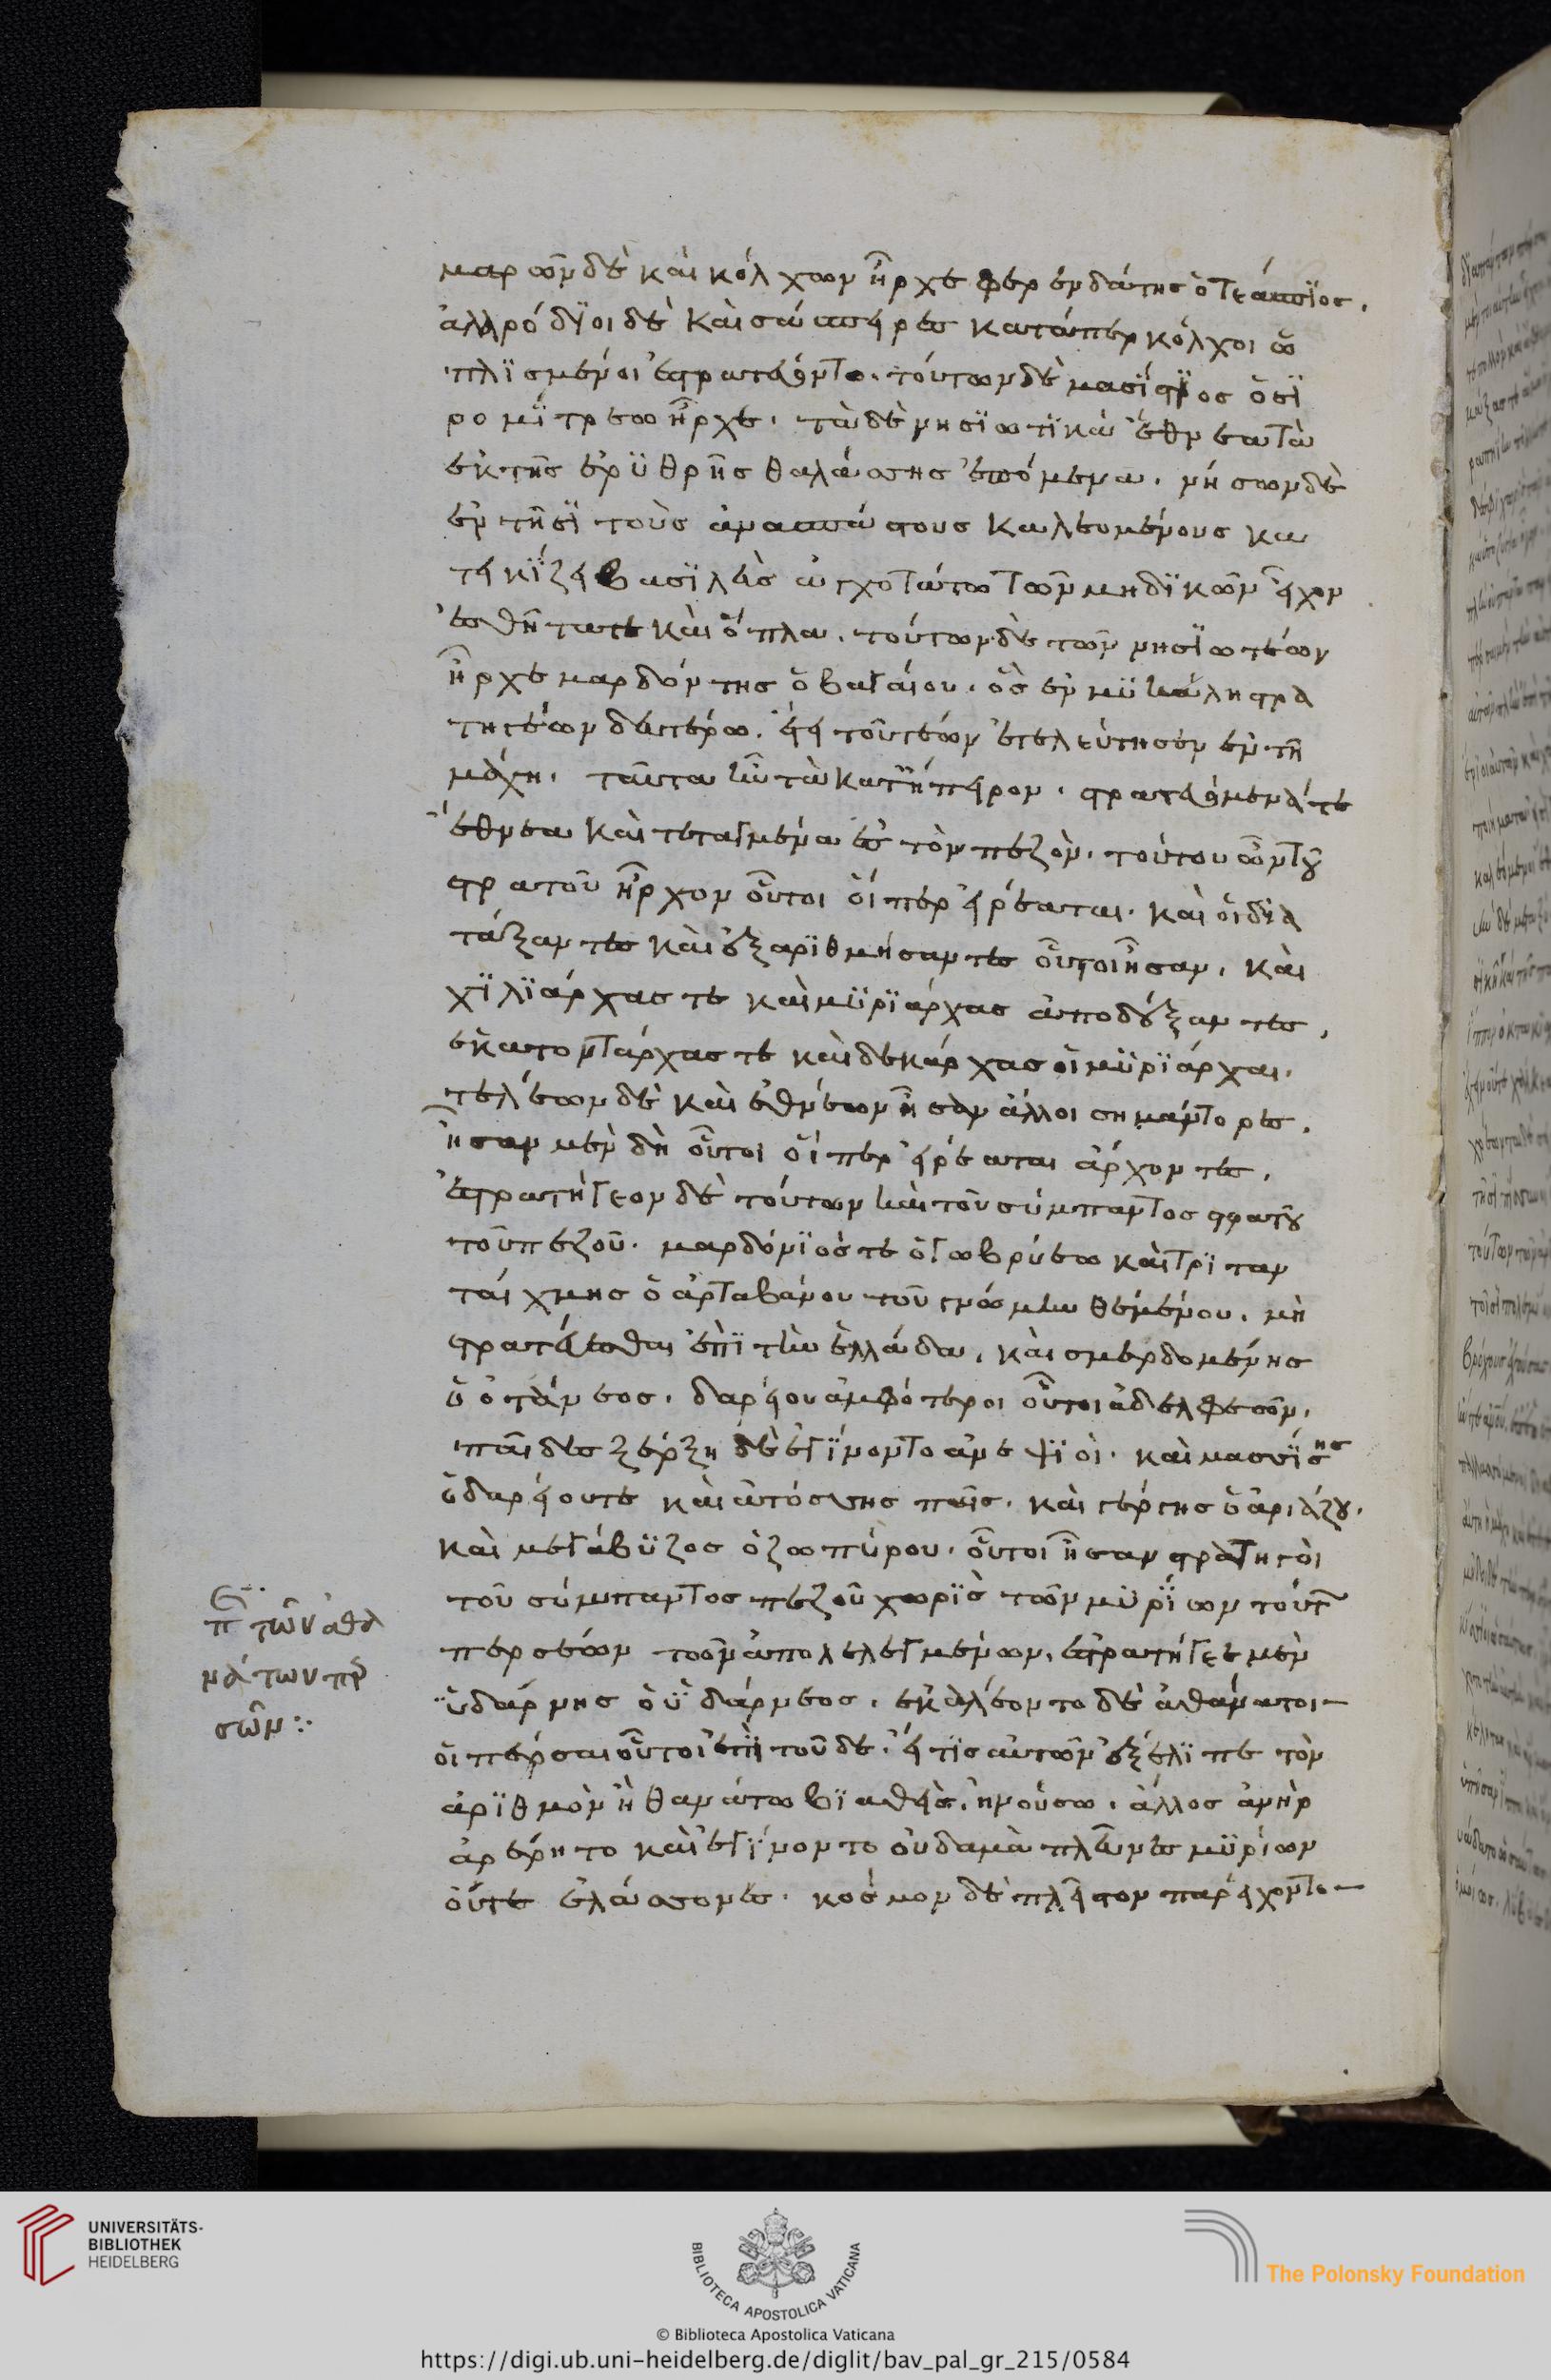 μαρῶν δὲ καὶ κόλχων ἦρχε φερενδάτης ὁ τεάσπϊος.
ἀλλρόδϊοι δὲ καὶ σάσπειρες κατάπερ κόλχοι ὡ
πλϊσμένοι ἐστρατεύοντο. τούτων δὲ μασίστϊος ὁ σϊ
ρομϊτρεω ἦρχε. τὰ δὲ νησϊωτϊκὰ ἔθνεα τὰ
ἐκ τῆς ἐρϋθρῆς θαλάσσης ἑπόμενα. νήσων δὲ
ἐν τῆσϊ τοὺς ἀνασπάστους καλεομένους κα
τεικϊζει βασϊλεὺς ἀγχοτάτω τῶν μηδϊκῶν εἶχον
ἐσθῆτάς τε καὶ ὅπλα. τούτων δὲ τῶν νησϊωτέων
ἦρχε μαρδόντης ὁ βαγαίου. ὃς ἐν μϋκάλη στρα
τηγέων δευτέρω. ἔτεϊ τουτέων ἐτελεύτησεν ἐν τῆ
μάχη. ταῦτα ἦν τὰ κατ' ἤπειρον. στρατευόμενά τε
ἔθνεα καὶ τεταγμένα ἐς τὸν πεζόν. τούτου ὦν τοῦ
στρατοῦ ἦρχον οὗτοι οἵπερ εἰρέαται. καὶ οἱ δια
τάξαντες καὶ ἐξαρϊθμήσαντες οὗτοι ἦσαν. καὶ
χϊλϊάρχας τε καὶ μϋρϊάρχας ἀποδέξαντες,
ἑκατοντάρχας τε καὶ δεκάρχας οἱ μϋρϊάρχαι.
τελέων δὲ καὶ ἐθνέων ἦσαν ἄλλοι σημάντορες.
ἦσαν μὲν δὴ οὗτοι οἵπερ εἰρέαται ἄρχοντες.
ἐστρατήγεον δὲ τούτων καὶ τοῦ σύμπαντος στρατοῦ
τοῦ πεζοῦ. μαρδόνϊός τε ὁ γωβρύεω καὶ τρϊταν
ταίχμης ὁ ἀρταβάνου τοῦ γνώμην θεμένου. μὴ
στρατεύεσθαι ἐπϊ τὴν ἑλλάδα. καὶ σμερδομένης
ὁ ὀτάνεος. δαρείου ἀμφότεροι οὗτοι ἀδελφεῶν.
παῖδες ξέρξη δὲ ἐγϊνοντο ἀνεψϊοὶ. καὶ μασϊστης
ὁ δαρείου τε καὶ ἀτόσσης παῖς. καὶ γέργης ὁ ἀριάζου.
καὶ μεγάβϋζος ὁ ζωπύρου. οὗτοι ἦσαν στρατηγοὶ
τοῦ σύμπαντος πεζοῦ χωρϊς τῶν μϋρϊων τούτων
περσέων τῶν ἀπολελεγμένων. ἐστρατήγεε μὲν
ϋδάρνης ὁ ϋδάρνεος. ἐκαλέοντο δὲ ἀθάνατοι
οἱ πέρσαι οὗτοι ἐπϊ τοῦδε. εἴ τϊς αὐτῶν ἐξέλϊπε τὸν
ἀρϊθμὸν ἢ θανάτω βϊαθεὶς. ἢ νούσω. ἄλλος ἀνὴρ
ἀρέρητο καὶ ἐγϊνοντο οὐδαμὰ πλεῦνες μϋρίων
οὔτε ἐλάσσονες. κόσμον δὲ πλεῖστον παρείχοντο
π τῶν ἀθα
νάτων περ
σῶν:
UNIVERSITÄTS-
BIBLIOTHEK
HEIDELBERG
BIBLIOTECA APOSTOLICA VATICANA
© Biblioteca Apostolica Vaticana
The Polonsky Foundation
https://digi.ub.uni-heidelberg.de/diglit/bav_pal_gr_215/0584